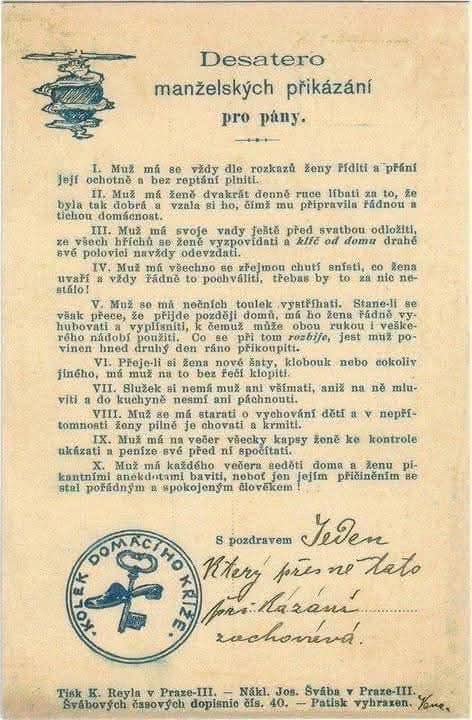 Desatero
manželských přikázání
pro pány.
I. Muž má se vždy dle rozkazů ženy říditi a přání
její ochotně a bez reptání plniti.
II. Muž má ženě dvakrát denně ruce líbati za to, že
byla tak dobrá a vzala si ho, čímž mu připravila řádnou a
tichou domácnost.
III. Muž má svoje vady ještě před svatbou odložiti,
ze všech hříchů se ženě vyzpovídati a klíč od domu drahé
své polovici navždy odevzdati.
IV. Muž má všechno se zřejmou chutí snísti, co žena
uvaří a vždy řádně to pochváliti, třebas by to za nic ne-
stálo!
V. Muž se má nočních toulek vystříhati. Stane-li se
však přece, že přijde později domů, má ho žena řádně vy-
hubovati a vyplísniti, k čemuž může obou rukou i veške-
rého nádobí použiti. Co se při tom rozbije, jest muž po-
vinen hned druhý den ráno přikoupiti.
VI. Přeje-li si žena nové šaty, klobouk nebo cokoliv
jiného, má muž na to bez řečí klopiti.
VII. Služek si nemá muž ani všímati, aniž na ně mlu-
viti a do kuchyně nesmí ani páchnouti.
VIII. Muž se má starati o vychování dětí a v nepří-
tomnosti ženy pilně je chovati a krmiti.
IX. Muž má na večer všecky kapsy ženě ke kontrole
ukázati a peníze své před ní spočítati.
X. Muž má každého večera seděti doma a ženu pi-
kantními anekdotami baviti, neboť jen jejím přičiněním se
stal pořádným a spokojeným člověkem!
S pozdravem Jeden
Který přesně tato
přikázání
zachovává.
KOLEK DOMÁCÍHO KŘÍŽE.
Tisk K. Reyla v Praze-III. — Nákl. Jos. Švába v Praze-III.
Švábových časových dopisnic čís. 40. — Patisk vyhrazen.